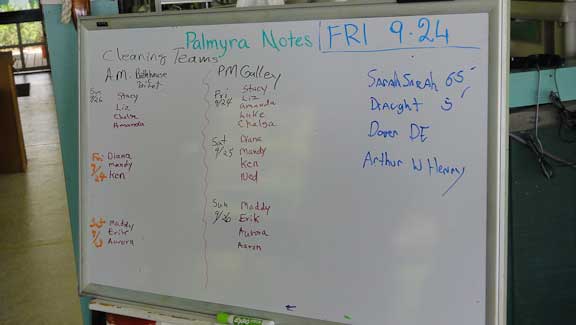 Palmyra Notes FRI 9.24
Cleaning Teams
A.M. Bathhouse
Toilet
Sun 9/26 Stacy
Liz
Chelsa
Amanda
Fri 9/24 Diana
Mandy
Ken
Sat Maddy
Erik
Aurora
PM Galley
Fri 9/24 Stacy
Liz
Amanda
Luke
Chelsa
Sat 9/25 Diana
Mandy
Ken
Ned
Sun 9/26 Maddy
Erik
Aurora
Aaron
Sarah Sarah 65'
Draught 5'
Dover DE
Arthur W Henry